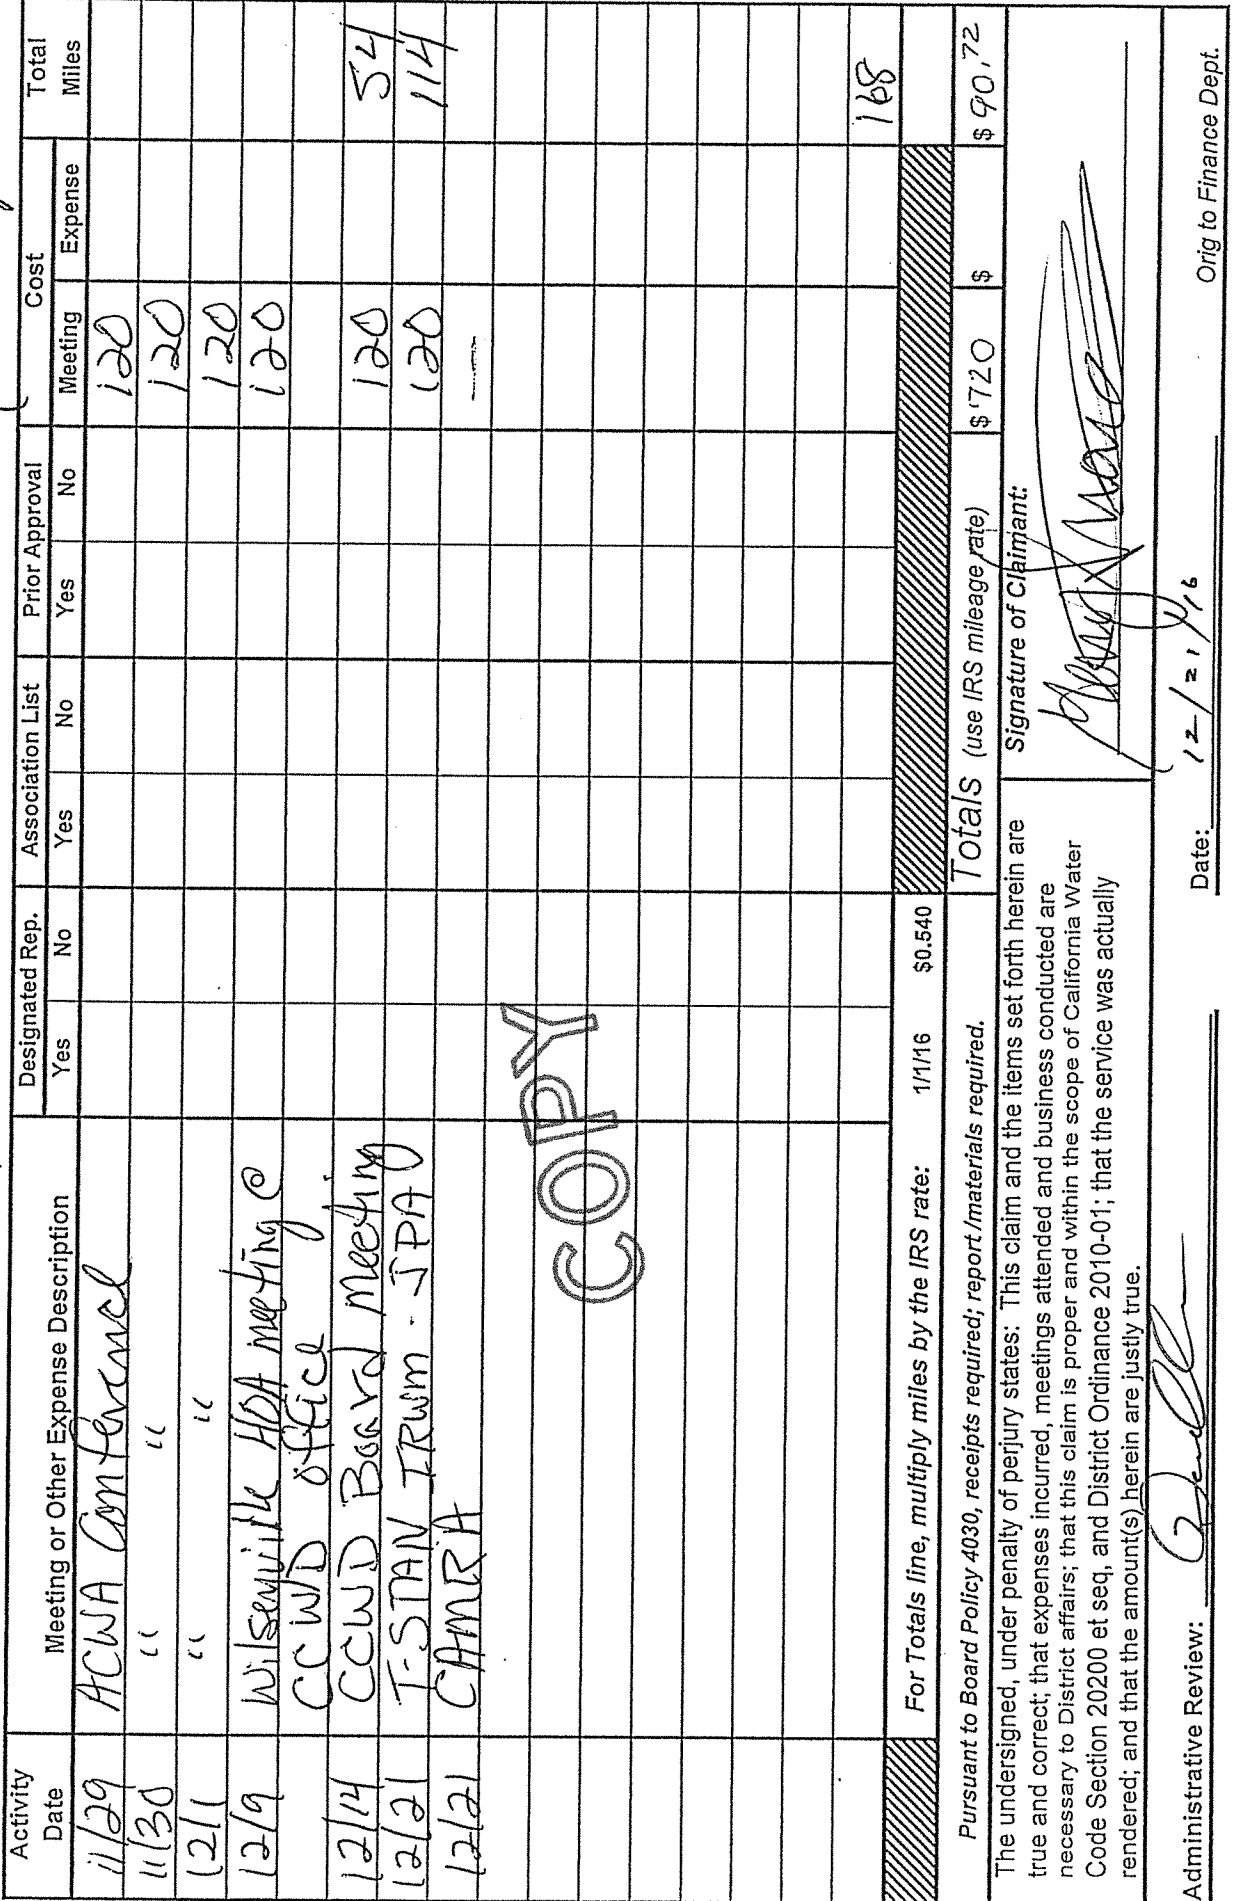 Activity Date Meeting or Other Expense Description Designated Rep. Association List Prior Approval Cost Total Miles
Yes No Yes No Yes No Meeting Expense
11/29 ACWA Conference 120
11/30 " " 120
12/1 " " 120
12/9 Wilseyville HOA meeting @ 120
CCWD office
12/14 CCWD Board meeting 120 54
12/21 T-STAN IRWM - JPA 120 114
12/21 CAMRA —
COPY
168
For Totals line, multiply miles by the IRS rate: 1/1/16 $0.540
Pursuant to Board Policy 4030, receipts required; report /materials required.
Totals (use IRS mileage rate) $ 720 $ $ 90.72
The undersigned, under penalty of perjury states: This claim and the items set forth herein are
true and correct; that expenses incurred, meetings attended and business conducted are
necessary to District affairs; that this claim is proper and within the scope of California Water
Code Section 20200 et seq, and District Ordinance 2010-01; that the service was actually
rendered; and that the amount(s) herein are justly true.
Signature of Claimant:
Administrative Review:
Date: 12/21/16
Orig to Finance Dept.